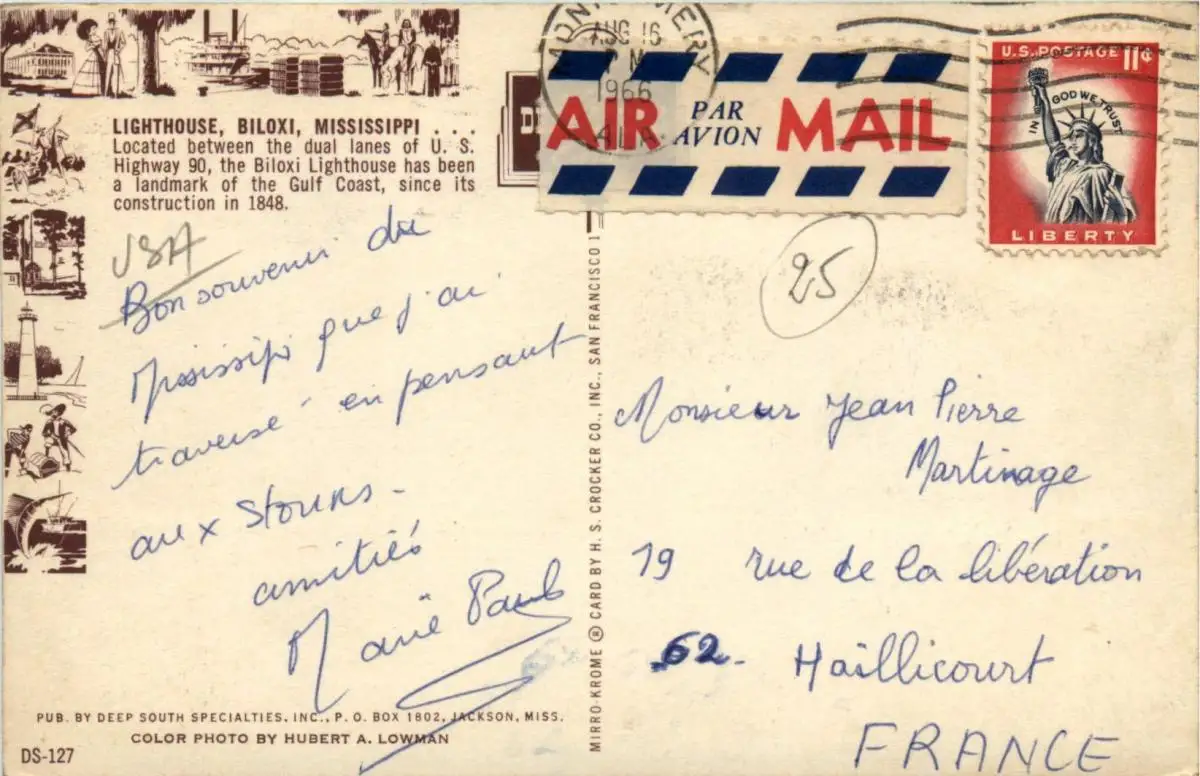 LIGHTHOUSE, BILOXI, MISSISSIPPI . . .
Located between the dual lanes of U. S.
Highway 90, the Biloxi Lighthouse has been
a landmark of the Gulf Coast, since its
construction in 1848.
USA
Bon souvenir du
Mississipi que j'ai
traversé en pensant
aux Stouks -
amitiés
Marie Paule
PUB. BY DEEP SOUTH SPECIALTIES, INC., P. O. BOX 1802, JACKSON, MISS.
COLOR PHOTO BY HUBERT A. LOWMAN
DS-127
MIRRO-KROME ® CARD BY H. S. CROCKER CO., INC., SAN FRANCISCO 1
MONTGOMERY
AUG 16
PM
1966
ALA.
AIR PAR AVION MAIL
U.S. POSTAGE 11¢
IN GOD WE TRUST
LIBERTY
25
Monsieur Jean Pierre
Martinage
19 rue de la libération
62. Haillicourt
FRANCE